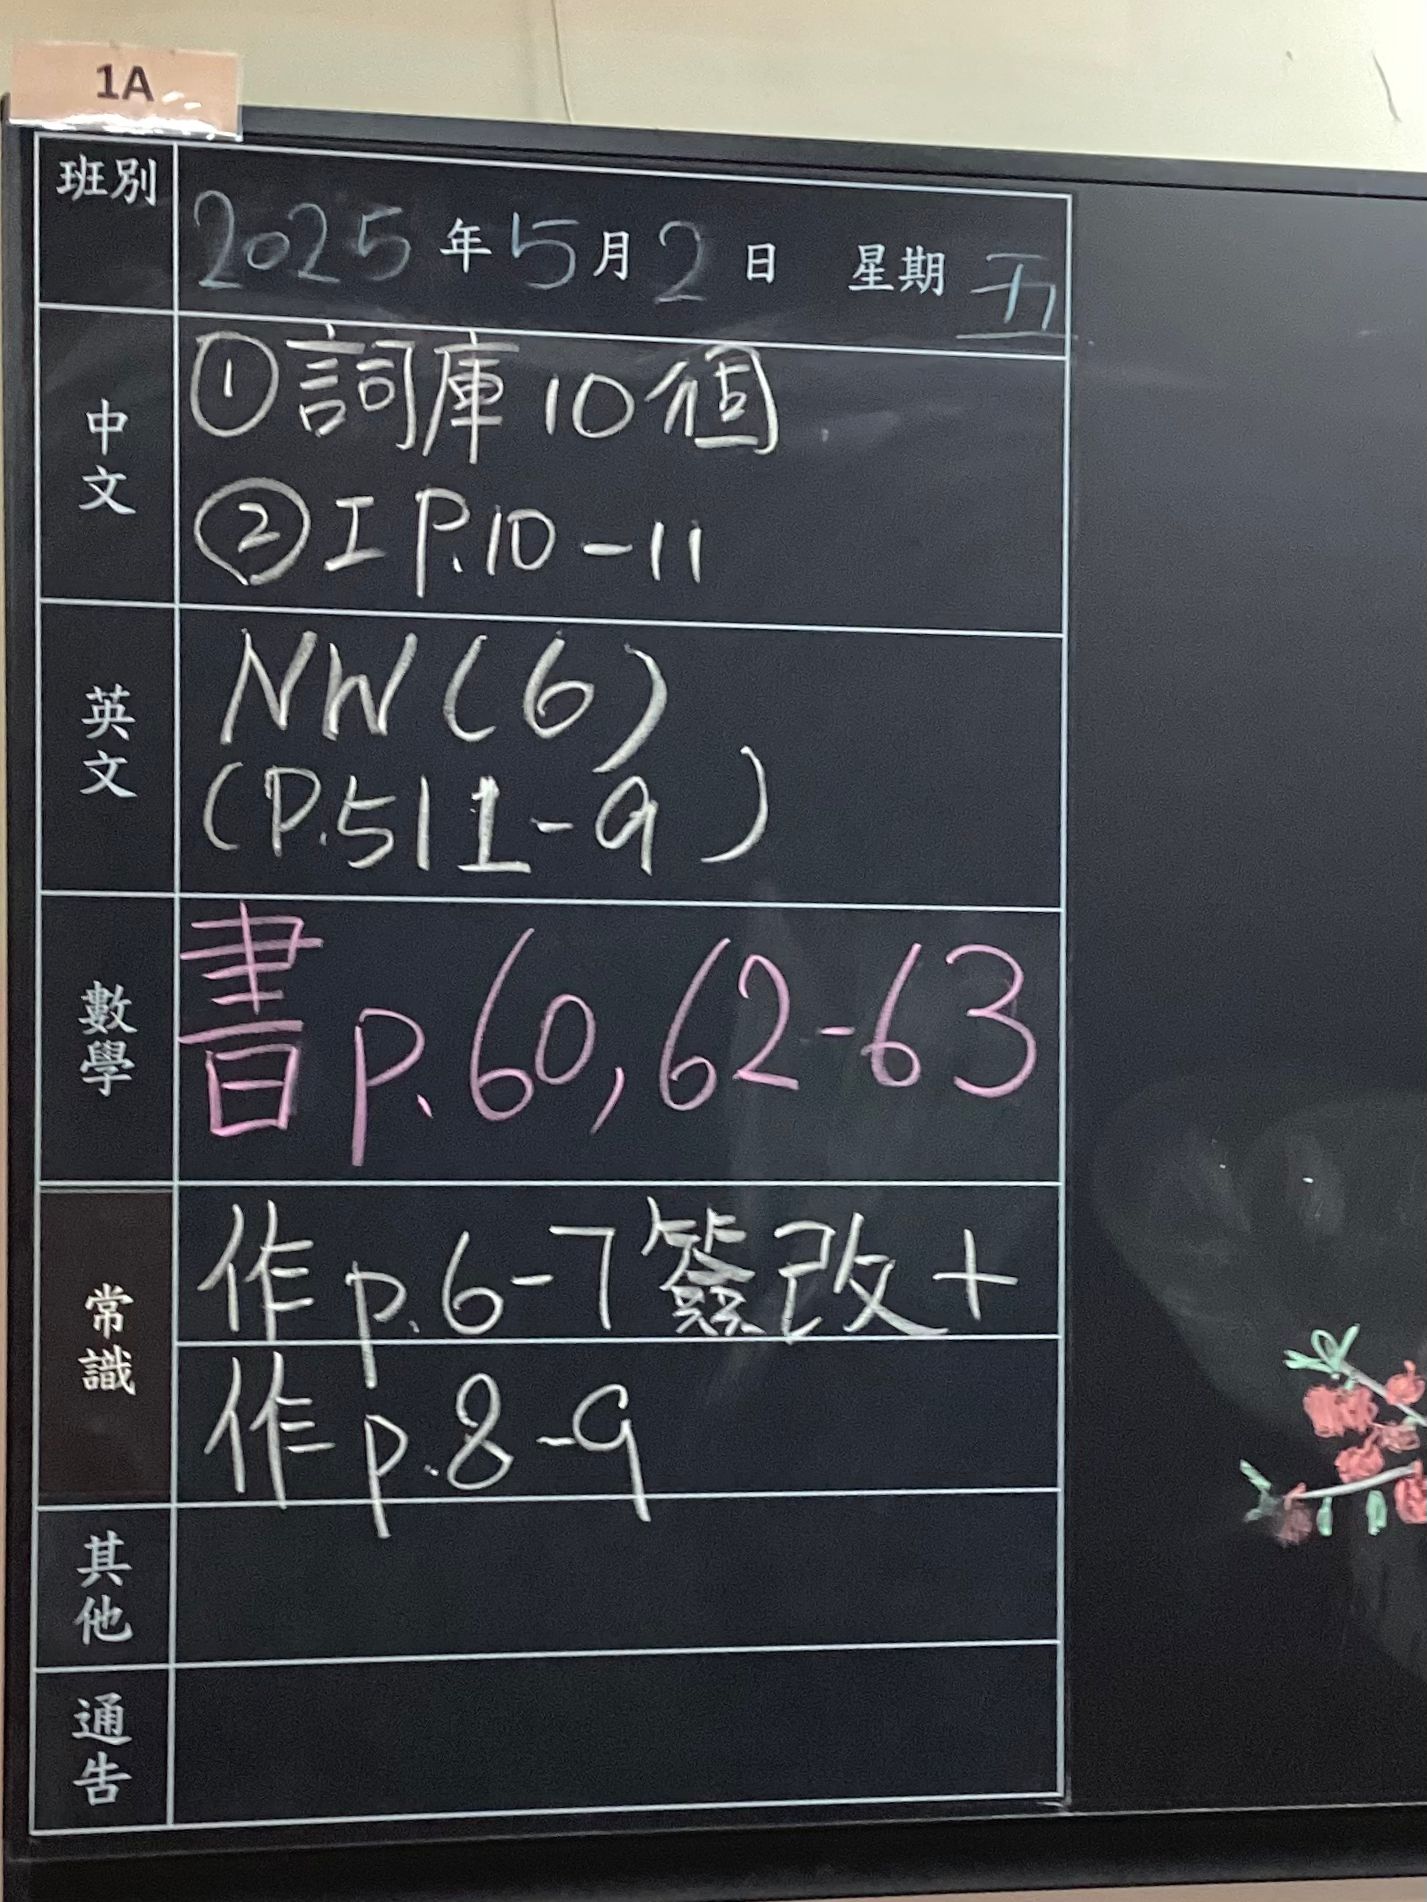 1A
班別
2025年5月2日 星期五
中文
①詞庫10個
②工 P.10-11
英文
NW(6)
(P.51 1-9)
數學
書p.60,62-63
常識
作p.6-7簽改+
作p.8-9
其他
通告